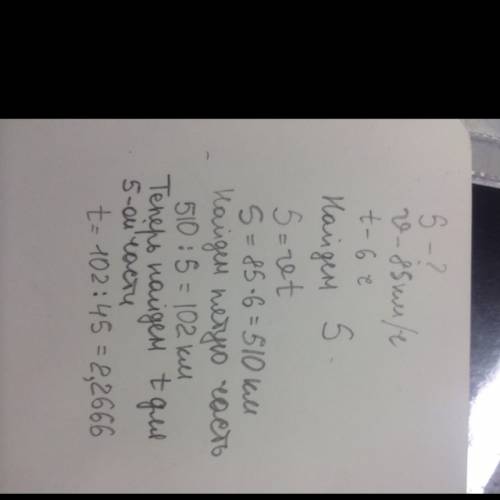 S - ?
v - 85 км/ч
t - 6 ч
Найдем S.
S = vt
S = 85·6 = 510 км
Найдем пятую часть
510 : 5 = 102 км
Теперь найдем t для
5-ой части
t = 102 : 45 = 2,2666